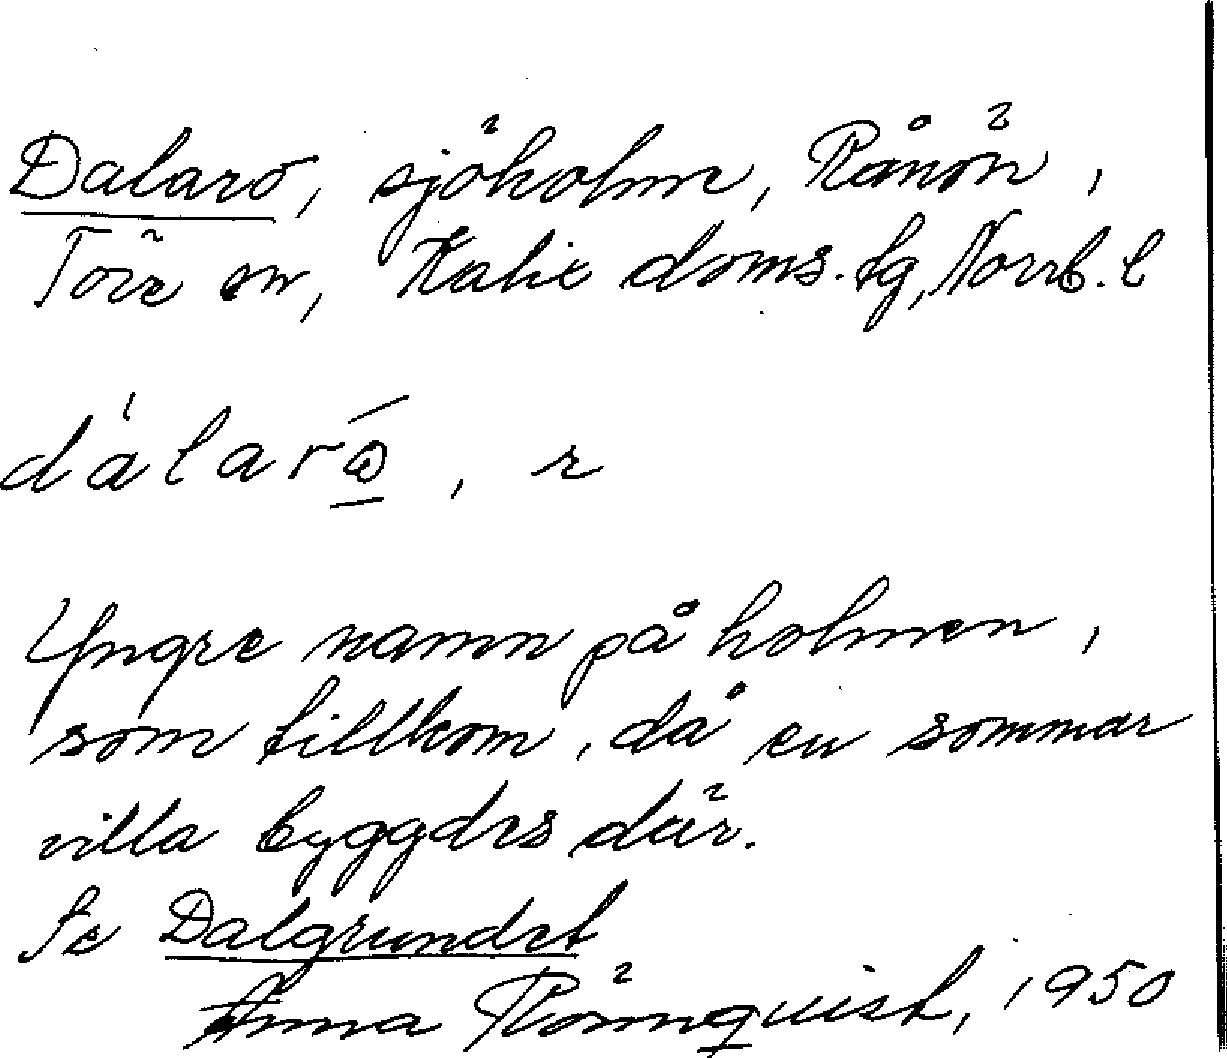 Dalarö, sjöholm, Rånön,
Töre sn, Kalix doms. sg, Norrb. l
dálarö, r
Yngre namn på holmen,
som tillkom, då en sommar
villa byggdes där.
Se Dalgrundet
Anna Rönnquist, 1950